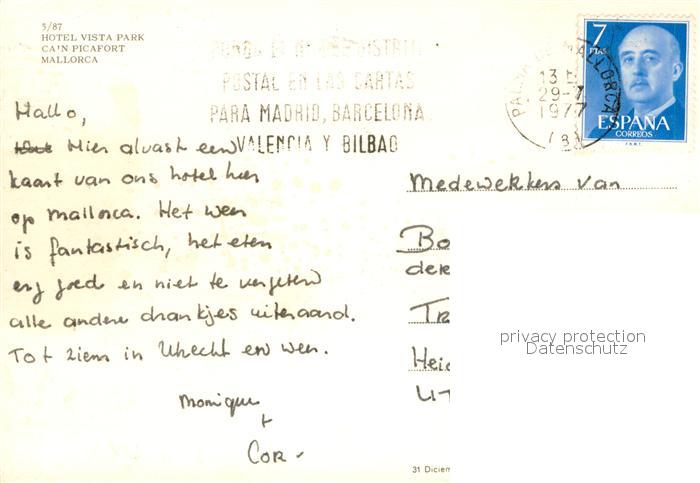 5/87
HOTEL VISTA PARK
CA'N PICAFORT
MALLORCA
PONGA EL Nº DEL DISTRITO
POSTAL EN LAS CARTAS
PARA MADRID, BARCELONA
VALENCIA Y BILBAO
PALMA DE MALLORCA
13
29-7
1977
7
PTAS
ESPAÑA
CORREOS
F.N.M.T.
Hallo,
Hier alvast een
kaart van ons hotel hier
op Mallorca. Het weer
is fantastisch, het eten
erg goed en niet te vergeten
alle andere drankjes uiteraard.
Tot ziens in Utrecht en weer.
Monique
+
Cor -
Medewerkers van
Bo
der
Tr
Heid
UT
privacy protection
Datenschutz
31 Diciem